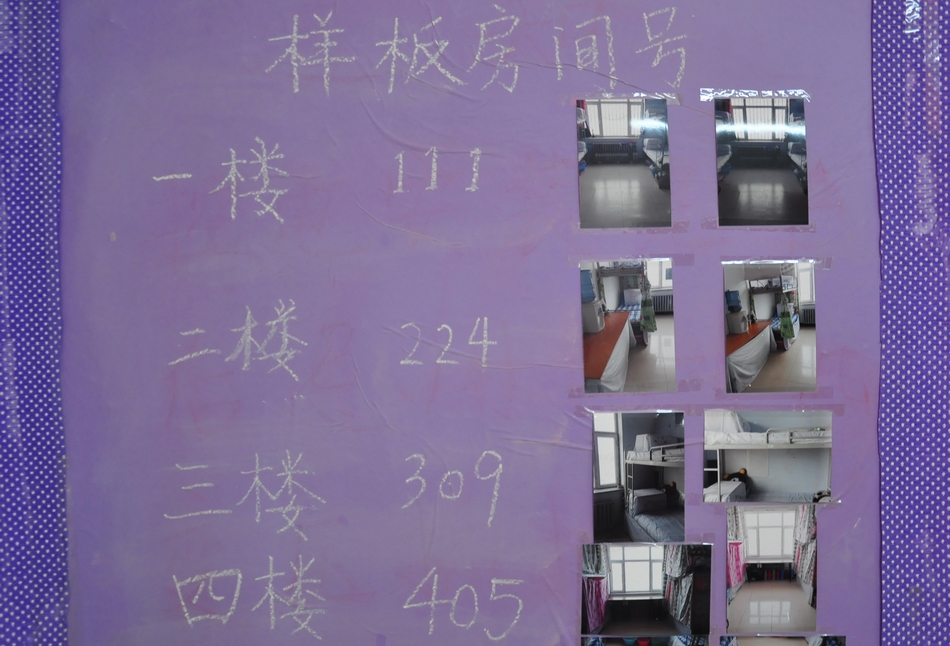 样板房间号
一楼 111
二楼 224
三楼 309
四楼 405